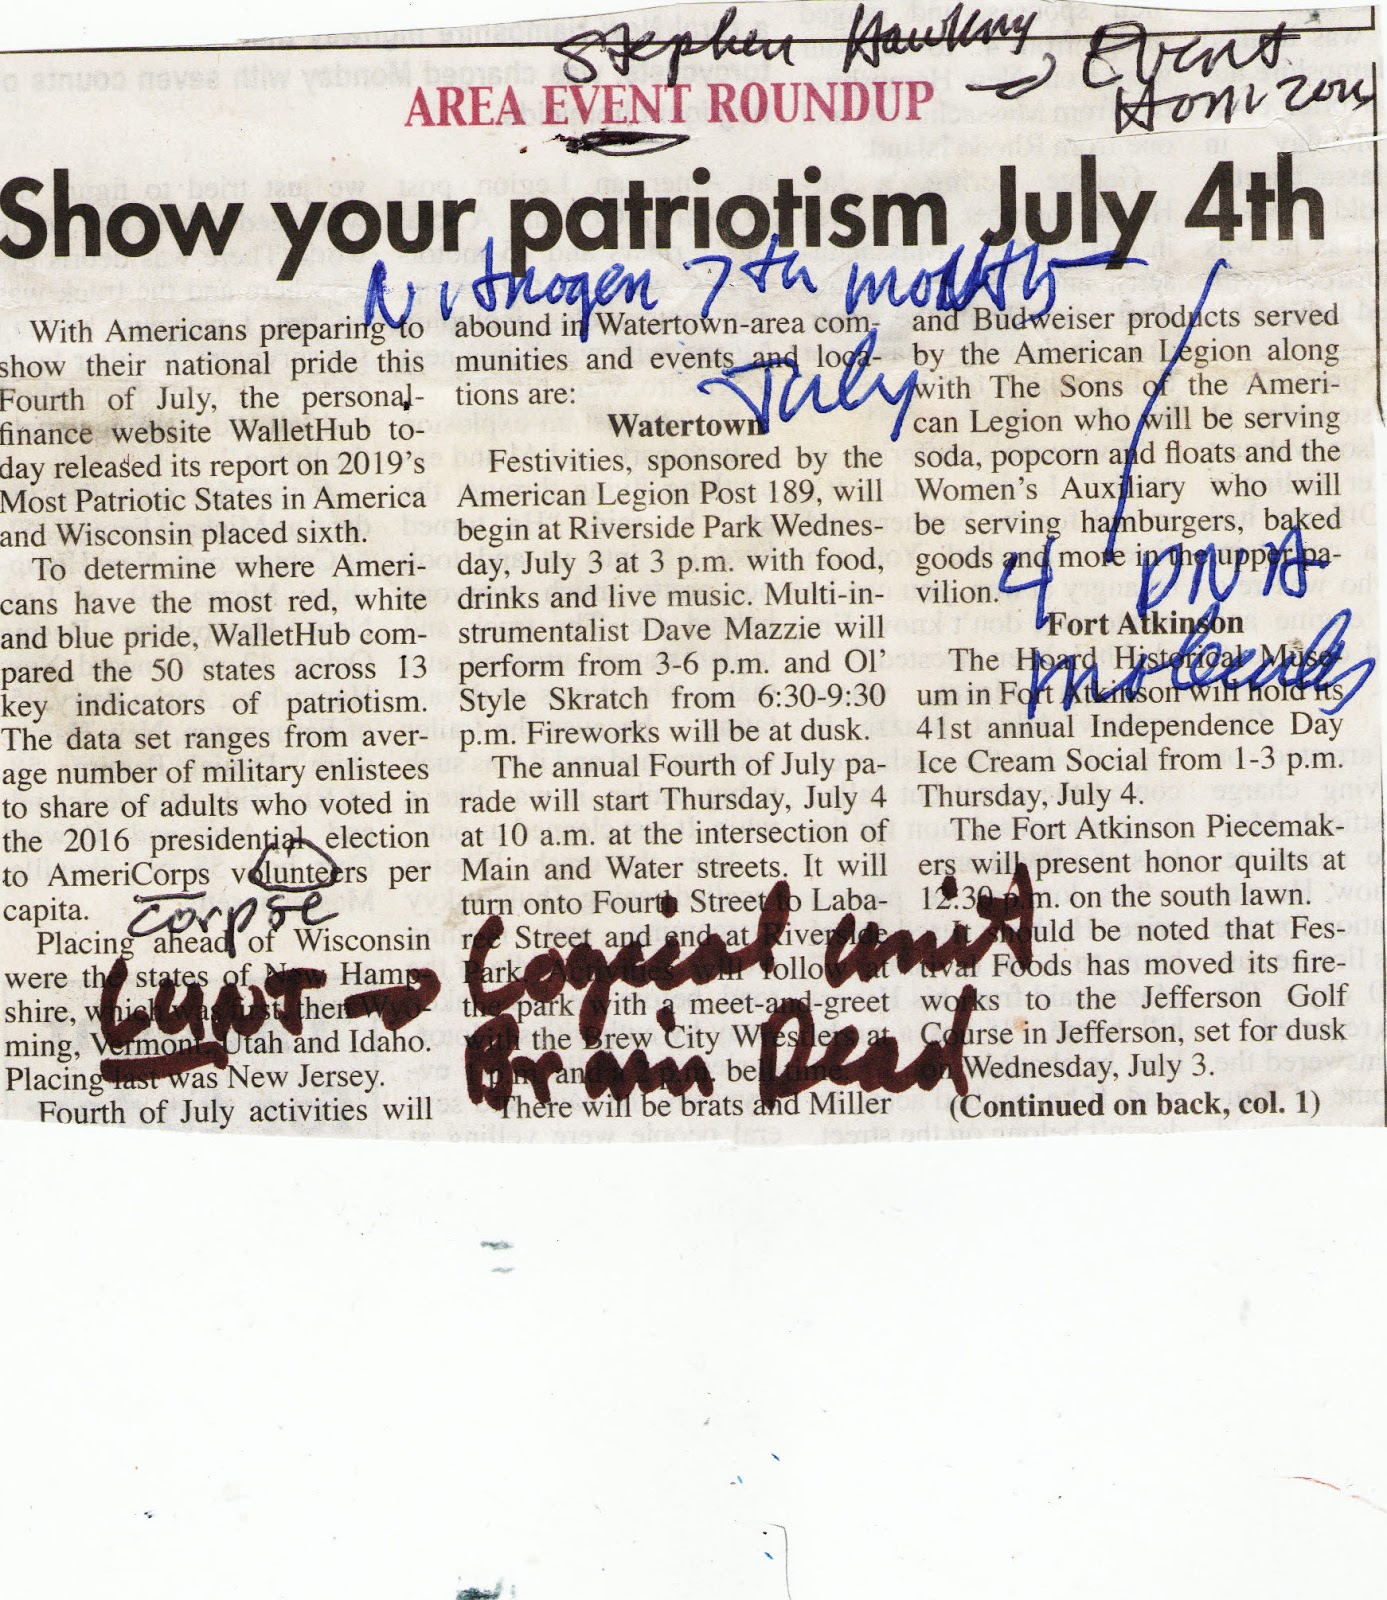 Stephen Hawking → Event
Horizon
AREA EVENT ROUNDUP
Show your patriotism July 4th
Nitrogen 7th month
July
With Americans preparing to
show their national pride this
Fourth of July, the personal-
finance website WalletHub to-
day released its report on 2019's
Most Patriotic States in America
and Wisconsin placed sixth.
To determine where Ameri-
cans have the most red, white
and blue pride, WalletHub com-
pared the 50 states across 13
key indicators of patriotism.
The data set ranges from aver-
age number of military enlistees
to share of adults who voted in
the 2016 presidential election
to AmeriCorps volunteers per
capita.
corpse
Placing ahead of Wisconsin
were the states of New Hamp-
shire, which was first, then Wyo-
ming, Vermont, Utah and Idaho.
Placing last was New Jersey.
Fourth of July activities will
abound in Watertown-area com-
munities and events and loca-
tions are:
Watertown
Festivities, sponsored by the
American Legion Post 189, will
begin at Riverside Park Wednes-
day, July 3 at 3 p.m. with food,
drinks and live music. Multi-in-
strumentalist Dave Mazzie will
perform from 3-6 p.m. and Ol'
Style Skratch from 6:30-9:30
p.m. Fireworks will be at dusk.
The annual Fourth of July pa-
rade will start Thursday, July 4
at 10 a.m. at the intersection of
Main and Water streets. It will
turn onto Fourth Street to Laba-
ree Street and end at Riverside
Park. Activities will follow at
the park with a meet-and-greet
with the Brew City Wrestlers at
1 p.m. and a 2 p.m. bell time.
There will be brats and Miller
→ Logical unit
Brain Dead
and Budweiser products served
by the American Legion along
with The Sons of the Ameri-
can Legion who will be serving
soda, popcorn and floats and the
Women's Auxiliary who will
be serving hamburgers, baked
goods and more in the upper pa-
vilion.
4 DNA
molecules
Fort Atkinson
The Hoard Historical Muse-
um in Fort Atkinson will hold its
41st annual Independence Day
Ice Cream Social from 1-3 p.m.
Thursday, July 4.
The Fort Atkinson Piecemak-
ers will present honor quilts at
12:30 p.m. on the south lawn.
It should be noted that Fes-
tival Foods has moved its fire-
works to the Jefferson Golf
Course in Jefferson, set for dusk
on Wednesday, July 3.
(Continued on back, col. 1)